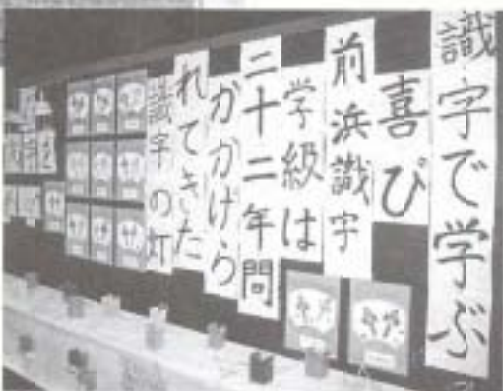 識字で学ぶ
喜び
前浜識字
学級は
二十二年間
かかげら
れてきた
識字の灯